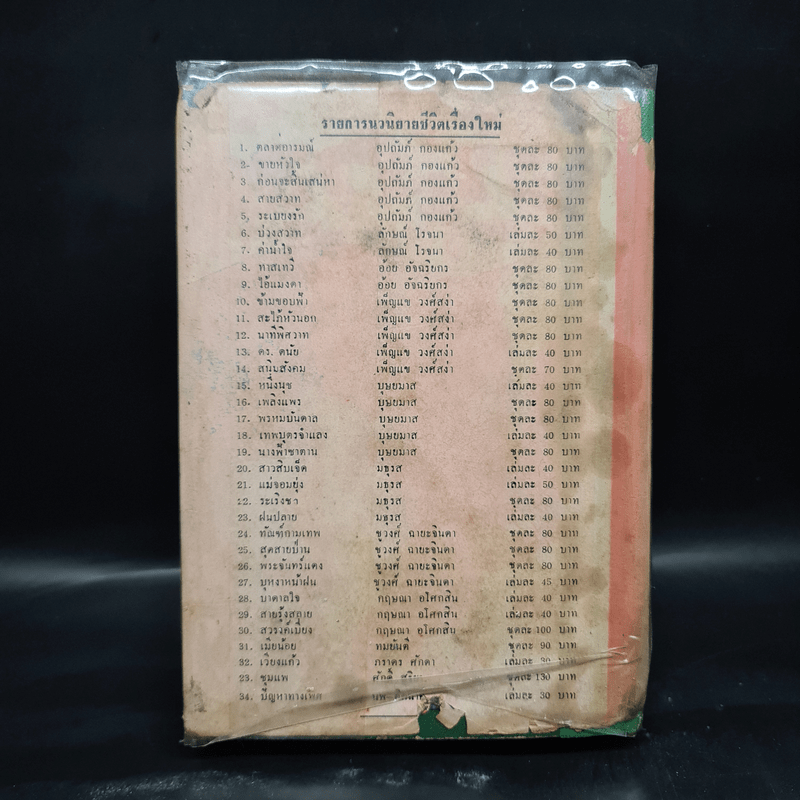 รายการนวนิยายชีวิตเรื่องใหม่
1. ตลาดอารมณ์ อุปถัมภ์ กองแก้ว ชุดละ 80 บาท
2. ขายหัวใจ อุปถัมภ์ กองแก้ว ชุดละ 80 บาท
3. ก่อนจะสิ้นเสน่หา อุปถัมภ์ กองแก้ว ชุดละ 80 บาท
4. สายสวาท อุปถัมภ์ กองแก้ว ชุดละ 80 บาท
5. ระเบียงรัก อุปถัมภ์ กองแก้ว ชุดละ 80 บาท
6. บ่วงสวาท ลักษณ์ โรจนา เล่มละ 50 บาท
7. ค่าน้ำใจ ลักษณ์ โรจนา เล่มละ 40 บาท
8. ทาสเทวี อ้อย อัจฉริยกร ชุดละ 80 บาท
9. ไอ้แมงดา อ้อย อัจฉริยกร ชุดละ 80 บาท
10. ข้ามขอบฟ้า เพ็ญแข วงศ์สง่า ชุดละ 80 บาท
11. สะใภ้หัวนอก เพ็ญแข วงศ์สง่า ชุดละ 80 บาท
12. นาทีพิศวาท เพ็ญแข วงศ์สง่า ชุดละ 80 บาท
13. ดร. ดนัย เพ็ญแข วงศ์สง่า เล่มละ 40 บาท
14. สนิมสังคม เพ็ญแข วงศ์สง่า ชุดละ 70 บาท
15. หนึ่งนุช บุษยมาส เล่มละ 40 บาท
16. เพลิงแพร บุษยมาส ชุดละ 80 บาท
17. พรหมบันดาล บุษยมาส ชุดละ 80 บาท
18. เทพบุตรจำแลง บุษยมาส เล่มละ 40 บาท
19. นางฟ้าซาตาน บุษยมาส ชุดละ 80 บาท
20. สาวสิบเจ็ด มธุรส เล่มละ 40 บาท
21. แม่จอมยุ่ง มธุรส เล่มละ 50 บาท
22. ระเริงชล มธุรส ชุดละ 80 บาท
23. ฝนปลาย มธุรส เล่มละ 40 บาท
24. ทัณฑ์กามเทพ ชูวงศ์ ฉายะจินดา ชุดละ 80 บาท
25. สุดสายป่าน ชูวงศ์ ฉายะจินดา ชุดละ 80 บาท
26. พระจันทร์แดง ชูวงศ์ ฉายะจินดา ชุดละ 80 บาท
27. บุหงาหน้าฝน ชูวงศ์ ฉายะจินดา เล่มละ 45 บาท
28. บาดาลใจ กฤษณา อโศกสิน เล่มละ 40 บาท
29. สายรุ้งสลาย กฤษณา อโศกสิน เล่มละ 40 บาท
30. สวรรค์เบี่ยง กฤษณา อโศกสิน ชุดละ 100 บาท
31. เมียน้อย ทมยันตี ชุดละ 90 บาท
32. เวียงแก้ว ภราดร ศักดา เล่มละ 30 บาท
23. ชุมแพ ศักดิ์ ชุดละ 130 บาท
34. ปัญหาทางเพศ นพ. เล่มละ 30 บาท